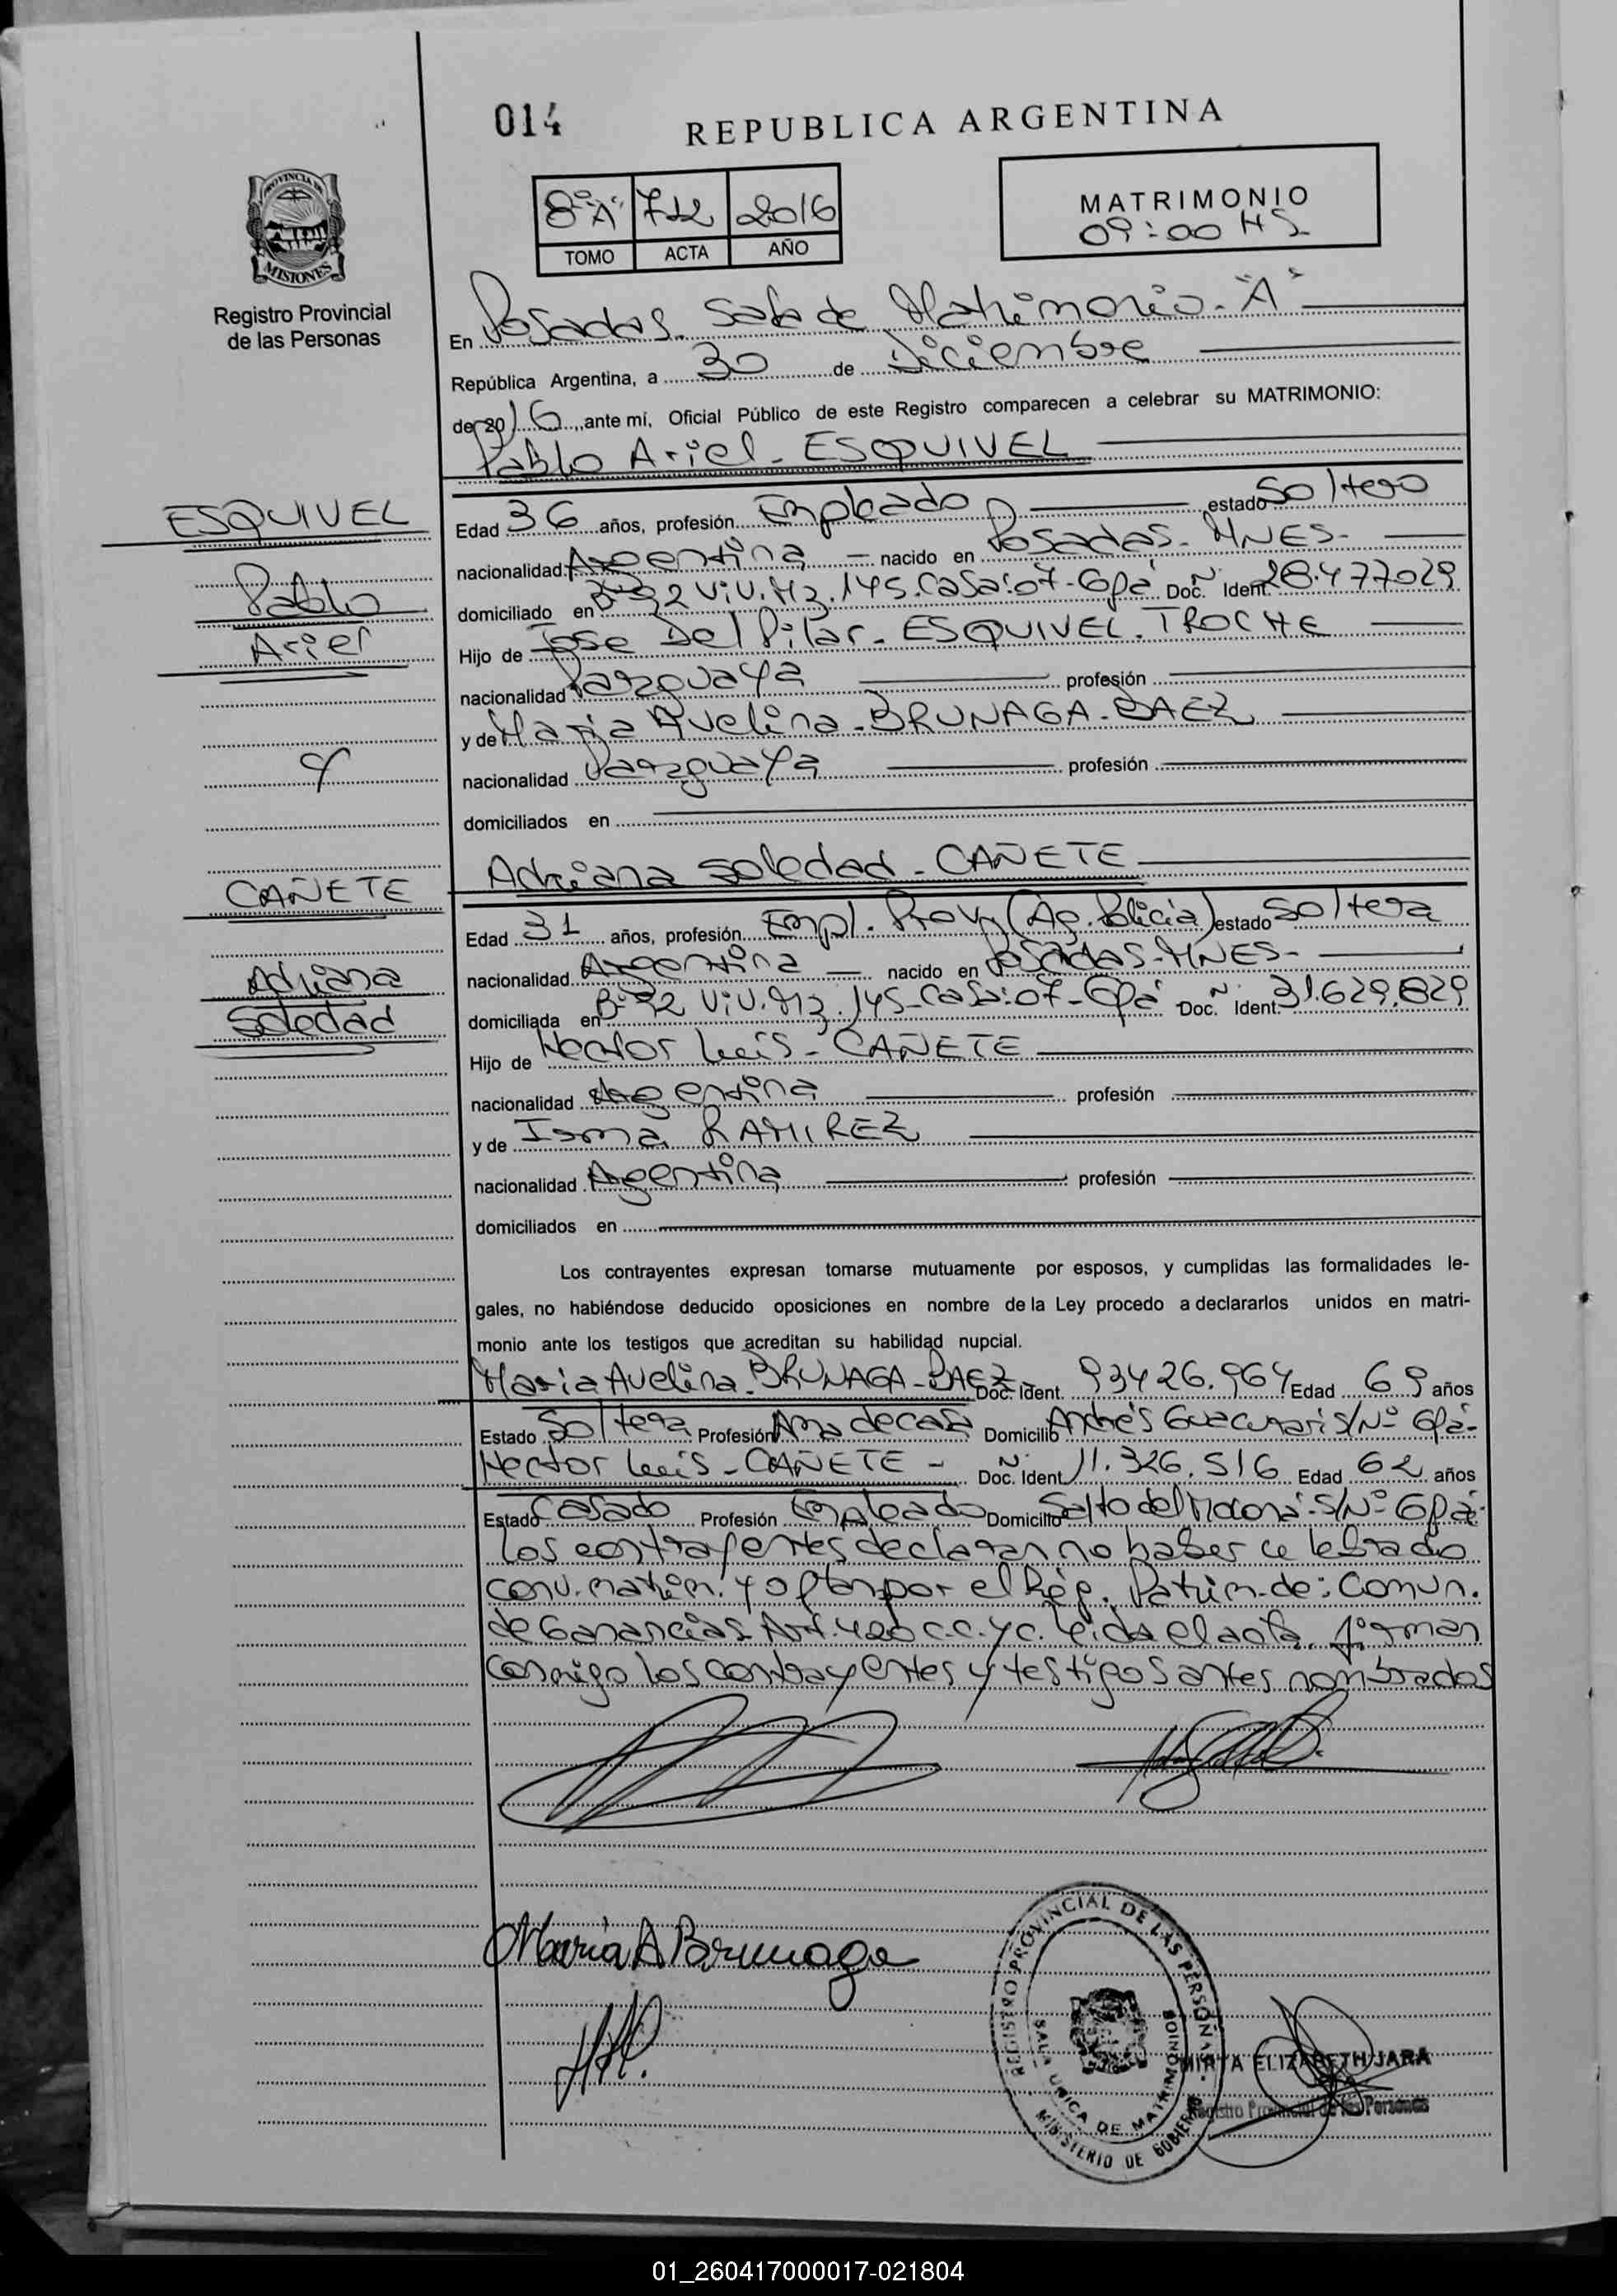 014
REPUBLICA ARGENTINA
PROVINCIA DE
MISIONES
Registro Provincial
de las Personas
8º"A" 712 2016
TOMO ACTA AÑO
MATRIMONIO
09:00 HS
En Posadas. Sala de Matrimonio-"A"
República Argentina, a 30 de Diciembre
de 2016, ante mí, Oficial Público de este Registro comparecen a celebrar su MATRIMONIO:
Pablo Ariel - ESQUIVEL
ESQUIVEL
Pablo
Ariel
Edad 36 años, profesión Empleado estado Soltero
nacionalidad Argentina nacido en Posadas. MNES-
domiciliado en Bº 32 Viv. Mz. 145. Casa: 07 - Gpá Doc. Nº Ident. 28.477029
Hijo de Jose Del Pilar - ESQUIVEL. TROCHE
nacionalidad Paraguaya profesión
y de Maria Avelina - BRUNAGA - BAEZ
nacionalidad Paraguaya profesión
domiciliados en
y
Adriana Soledad - CAÑETE
CAÑETE
Adriana
Soledad
Edad 31 años, profesión Empl. Prov. (Ag. Policia) estado Soltera
nacionalidad Argentina nacido en Posadas-MNES-
domiciliada en Bº 32 Viv. Mz. 145 - Casa: 07 - Gpá Doc. Nº Ident. 31.629.829
Hijo de Hector Luis - CAÑETE
nacionalidad Argentina profesión
y de Irma RAMIREZ
nacionalidad Argentina profesión
domiciliados en
Los contrayentes expresan tomarse mutuamente por esposos, y cumplidas las formalidades le-
gales, no habiéndose deducido oposiciones en nombre de la Ley procedo a declararlos unidos en matri-
monio ante los testigos que acreditan su habilidad nupcial.
Maria Avelina. BRUNAGA - BAEZ Doc. Ident. 93426.964 Edad 69 años
Estado Soltera Profesión Ama de casa Domicilio Andrés Guacurari S/Nº Gpá-
Hector Luis - CAÑETE - Doc. Nº Ident 11.326.516 Edad 62 años
Estado Casado Profesión Empleado Domicilio Salto del Moconá - S/Nº Gpá-
Los contrayentes declaran no haber celebrado
conv. matrim. y optan por el Rég. Patrim. de: Comun.
de Ganancias Art. 420 C.C.yC. Leida el acta, firman
conmigo los contrayentes y testigos antes nombrados
Maria A Brunaga
REGISTRO PROVINCIAL DE LAS PERSONAS
SALA UNICA DE MATRIMONIOS
MINISTERIO DE GOBIERNO
MIRTA ELIZABETH JARA
Registro Provincial de las Personas
01_260417000017-021804